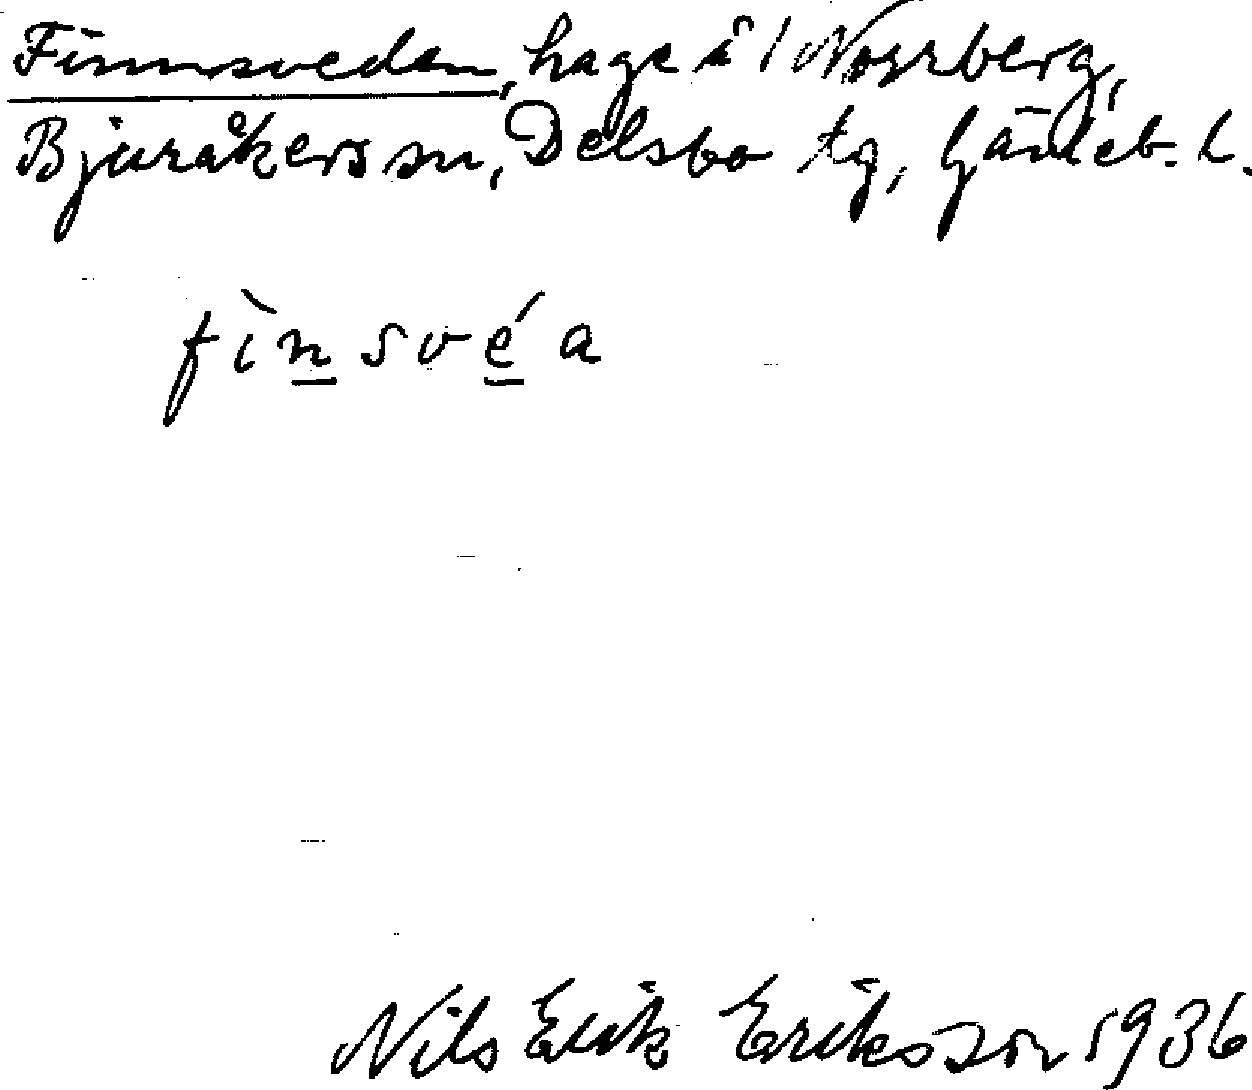 Finnsveden, hage å 1 Norrberg,
Bjuråkers sn, Delsbo tg, Gävleb. l.
fìnsvéa
Nils Erik Eriksson 1936